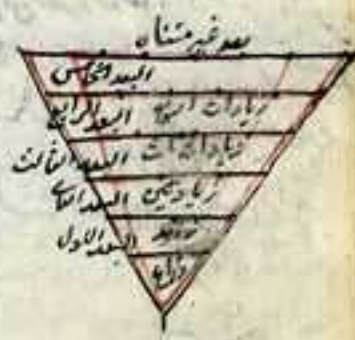 بعد غير متناه
البعد الخامس
زيادات اربع البعد الرابع
زيادات ثلث البعد الثالث
زيادتين البعد الثاني
البعد الاول
ذراع